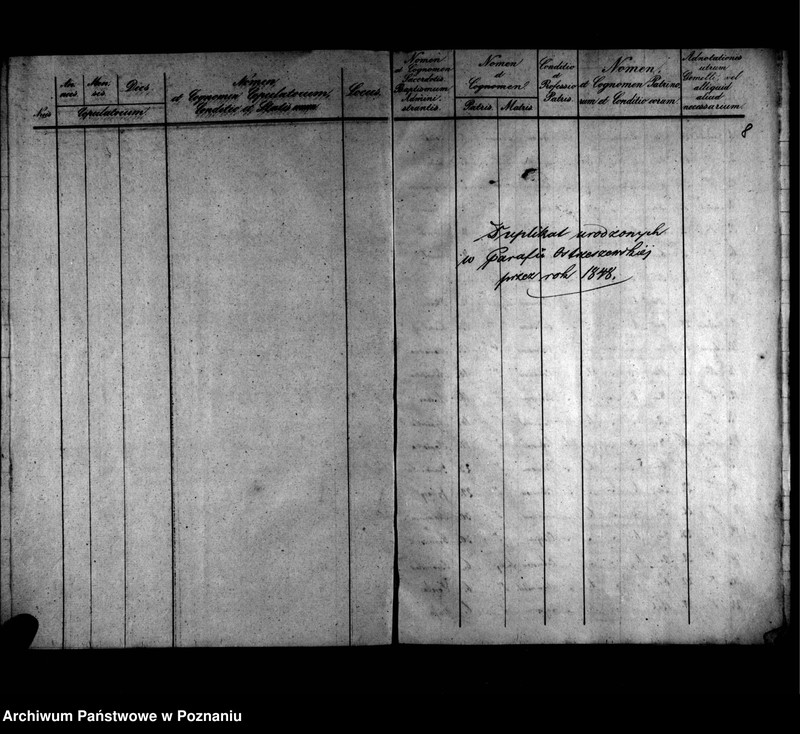 Nrus
An
norum
Men
sis
Dies.
Copulatorum
Nomen
et Cognomen Copulatorum,
Conditio et Status
Locus.
Nomen
et Cognomen
Sacerdotis
Baptismum
Admini
strantis.
Nomen
et
Cognomen
Patris
Matris
Conditio
et
Professio
Patris.
Nomen,
et Cognomen Patrino
rum et Conditio eorum.
Adnotationes
utrum
Gemelli, vel
aliquid
aliud
necessarium.
8
Duplikat urodzonych
w Parafii Ostrzeszewskiej
przez rok 1848.
Archiwum Państwowe w Poznaniu